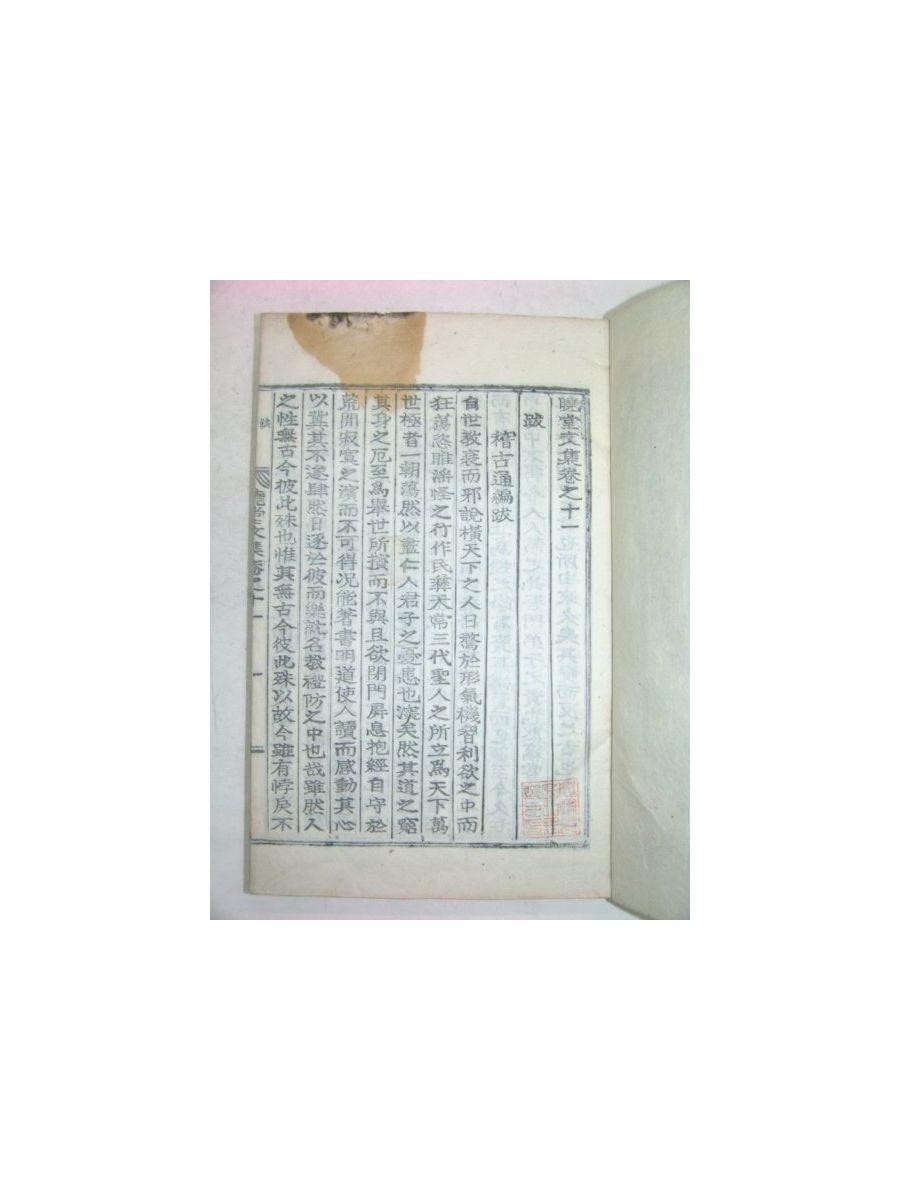 曉堂文集卷之十一
跋
稽古通編跋
自世教衰而邪說橫天下之人日騖於形氣機智利欲之中而
狂蕩恣睢濫怪之行作民彝天常三代聖人之所立爲天下萬
世極者一朝蕩然以盡仁人君子之憂患也深矣然其道之窮
其身之厄至爲舉世所擯而不與且欲閉門屏息抱經自守於
荒閒寂寞之濱而不可得况能著書明道使人讀而感動其心
以冀其不遂肆然日逐於彼而樂就名教禮防之中也哉雖然人
之性無古今彼此殊也惟其無古今彼此殊以故今雖有悖戾不